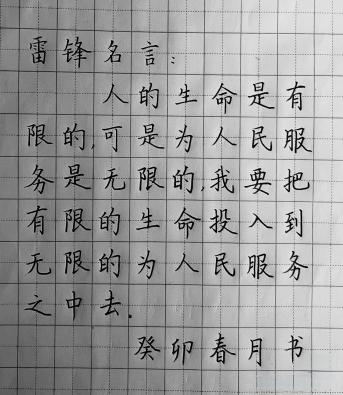 雷锋名言:
人的生命是有
限的,可是为人民服
务是无限的,我要把
有限的生命投入到
无限的为人民服务
之中去.
癸卯春月书